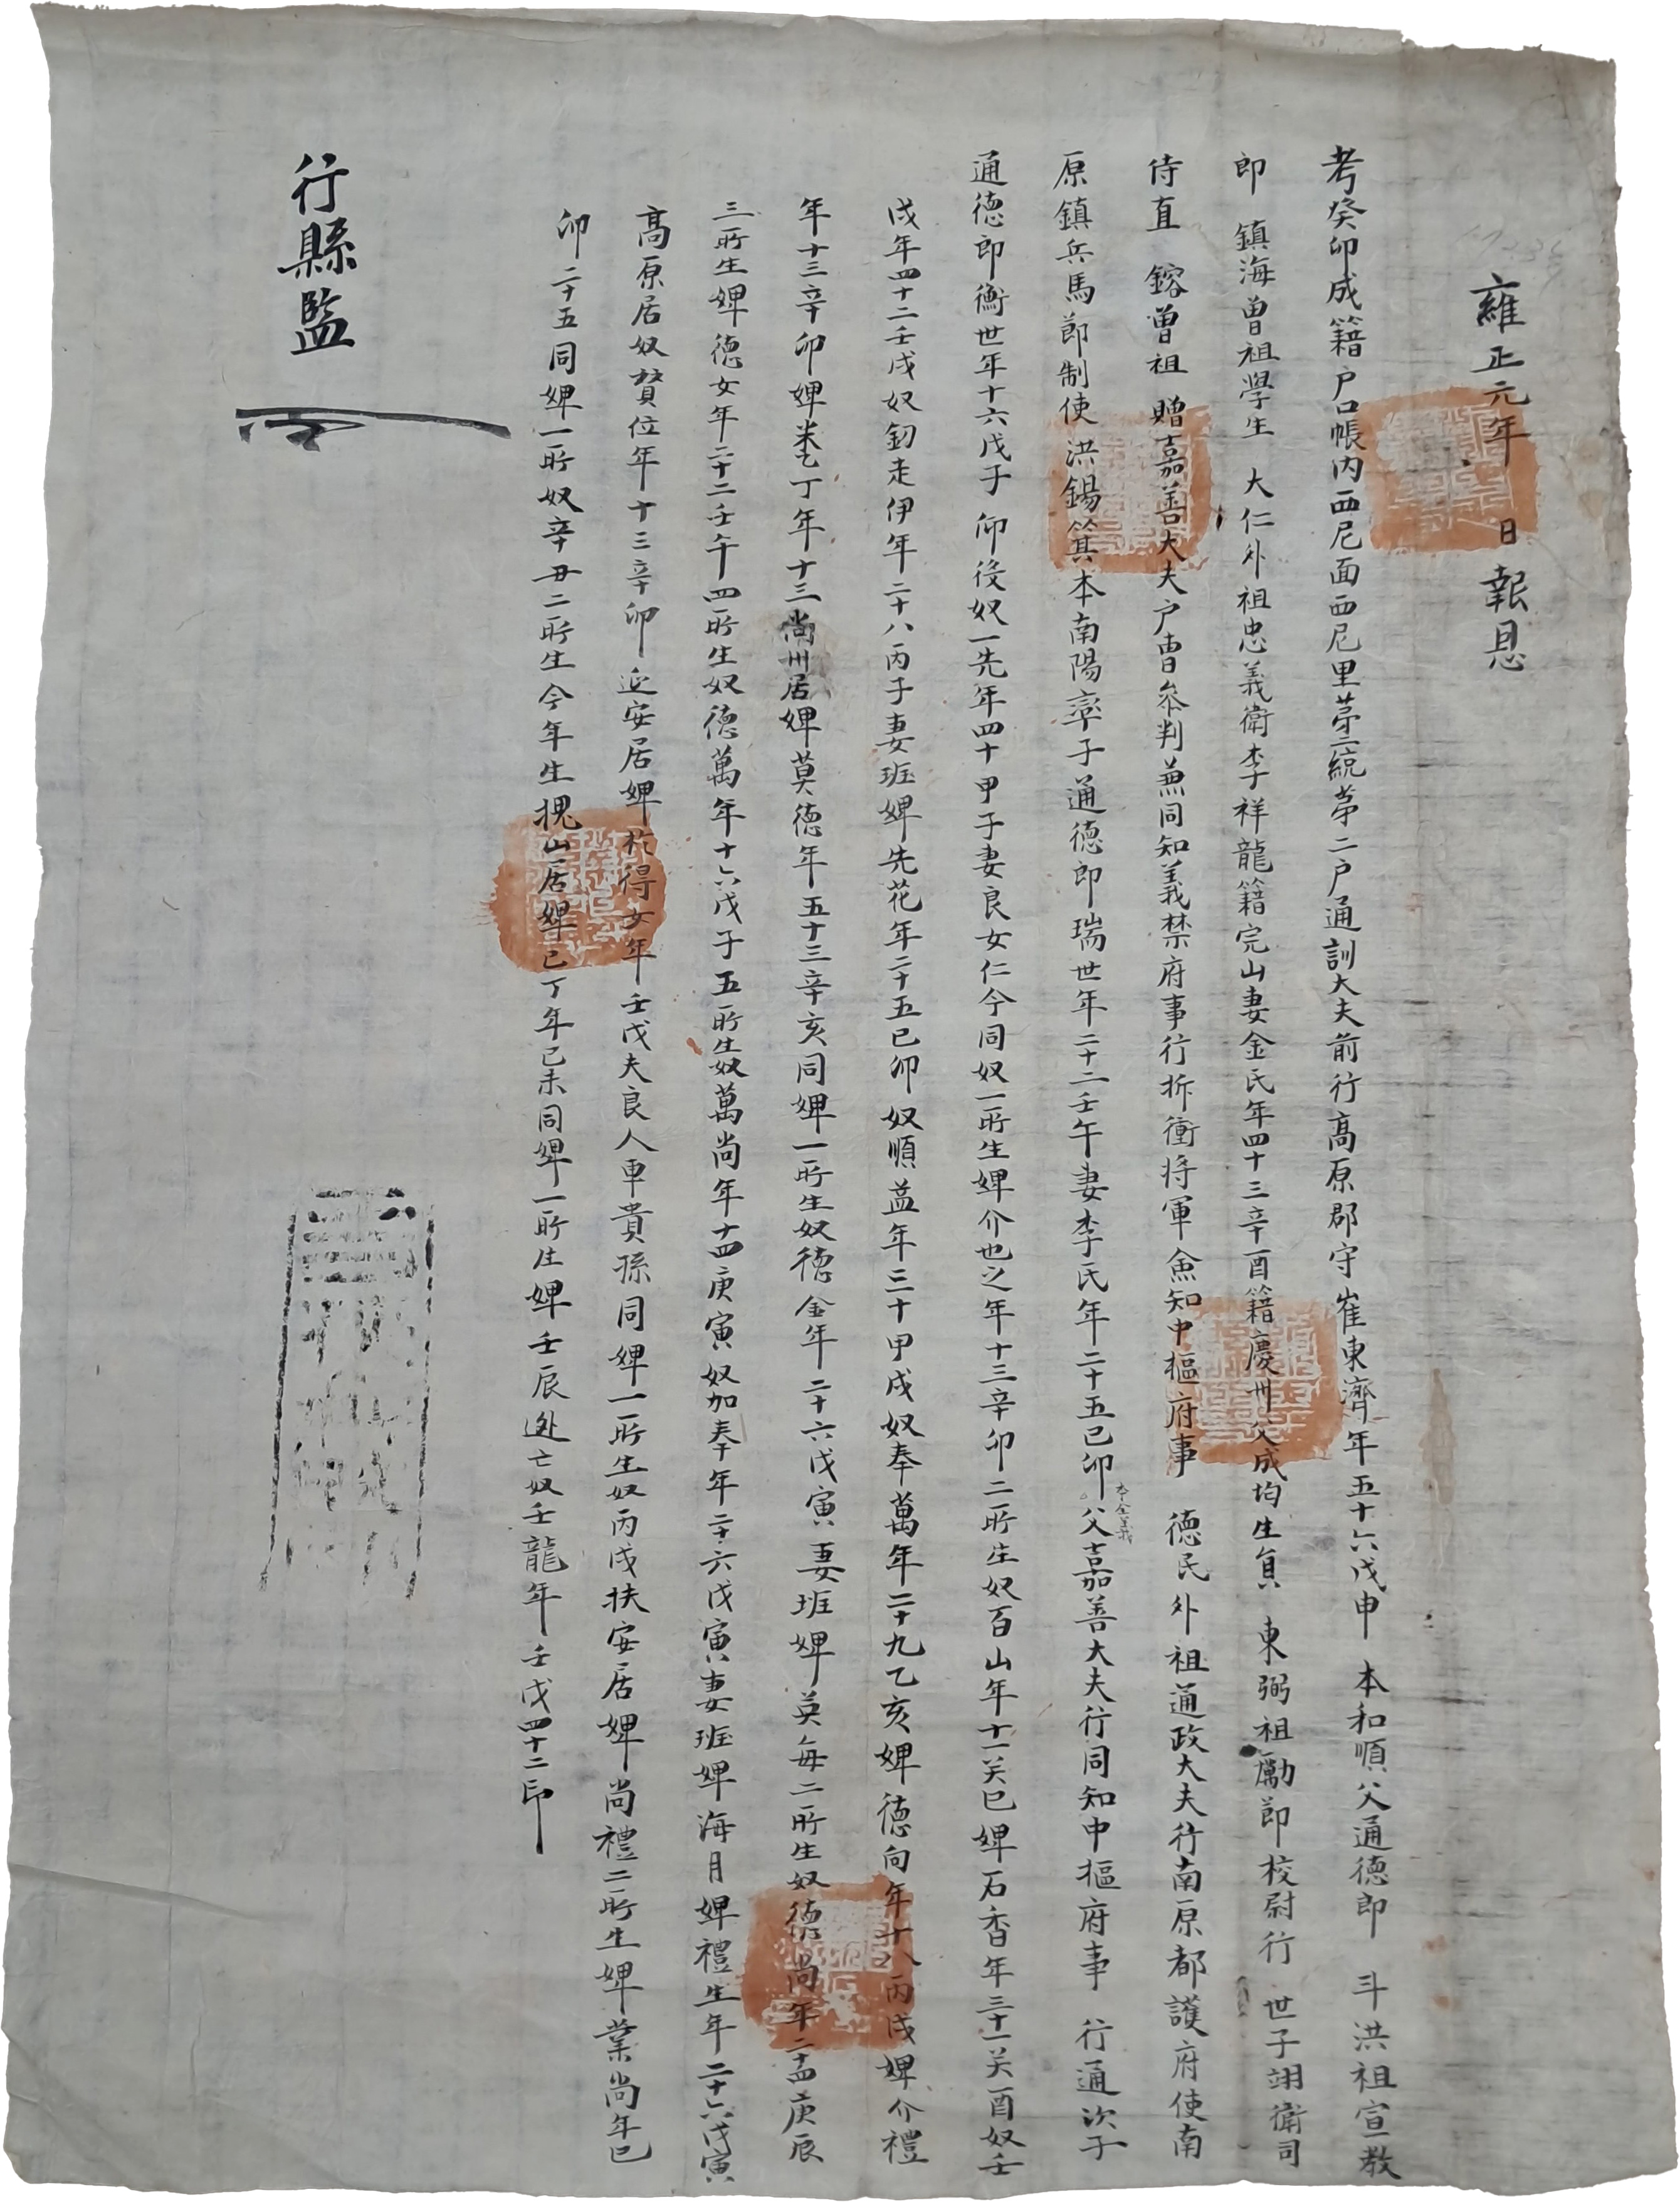 雍正元年 日 報恩
考癸卯成籍户口帳内西尼面西尼里苐一統苐二户通訓大夫前行高原郡守崔東濟年五十六戊申 本和順父通德郎 斗洪祖宣教
郎 鎮海曾祖學生 大仁外祖忠義衛李祥龍籍完山妻金氏年四十三辛酉籍慶州父成均生員 東弼祖勵節校尉行 世子翊衛司
侍直 鎔曾祖 贈嘉善大夫户曹叅判兼同知義禁府事行折衝将軍僉知中樞府事 德民外祖通政大夫行南原都護府使南
原鎮兵馬節制使洪錫箕本南陽率子通德郎瑞世年二十二壬午妻李氏年二十五己卯本全義父嘉善大夫行同知中樞府事 行通次子
通德郎衡世年十六戊子 仰役奴一先年四十甲子妻良女仁今同奴一所生婢介也之年十三辛卯二所生奴百山年十一癸巳婢石香年三十一癸酉奴壬
戌年四十二壬戌奴釰走伊年二十八丙子妻班婢先花年二十五己卯奴順益年三十甲戌奴奉萬年二十九乙亥婢德向年十八丙戌婢介禮
年十三辛卯婢丁年十三尚州居婢莫德年五十三辛亥同婢一所生奴德金年二十六戊寅妻班婢英每二所生奴德尚年二十四庚辰
三所生婢德女年二十二壬午四所生奴德萬年十六戊子五所生奴萬尚年十四庚寅奴加奉年二十六戊寅妻班婢海月婢禮生年二十六戊寅
高原居奴贊位年十三辛卯 延安居婢得女年壬戌夫良人車貴孫同婢一所生奴丙戌扶安居婢尚禮二所生婢業尚年己
卯二十五同婢一所奴辛丑二所生今年生槐山居婢己丁年己未同婢一所生婢壬辰逃亡奴壬龍年壬戌四十二印
行縣監